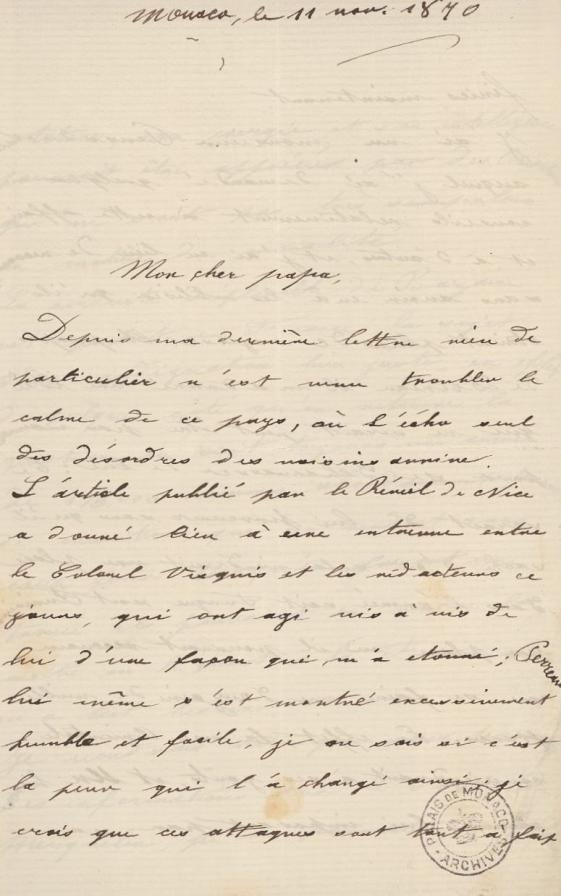 Monaco, le 11 nov. 1870
Mon cher papa,
Depuis ma dernière lettre rien de
particulier n'est venu troubler le
calme de ce pays, où l'écho seul
des désordres des voisins arrive.
L'article publié par le Réveil de Nice
a donné lieu à une entrevue entre
le Colonel et les rédacteurs ce
qui ont agi vis à vis de
lui d'une façon qui m'a etonné;
lui même s'est montré excessivement
humble et facile, je ne sais si c'est
la peur qui l'a changé ainsi, je
crois que ces attaques sont tout à fait
PALAIS DE MONACO
ARCHIVES